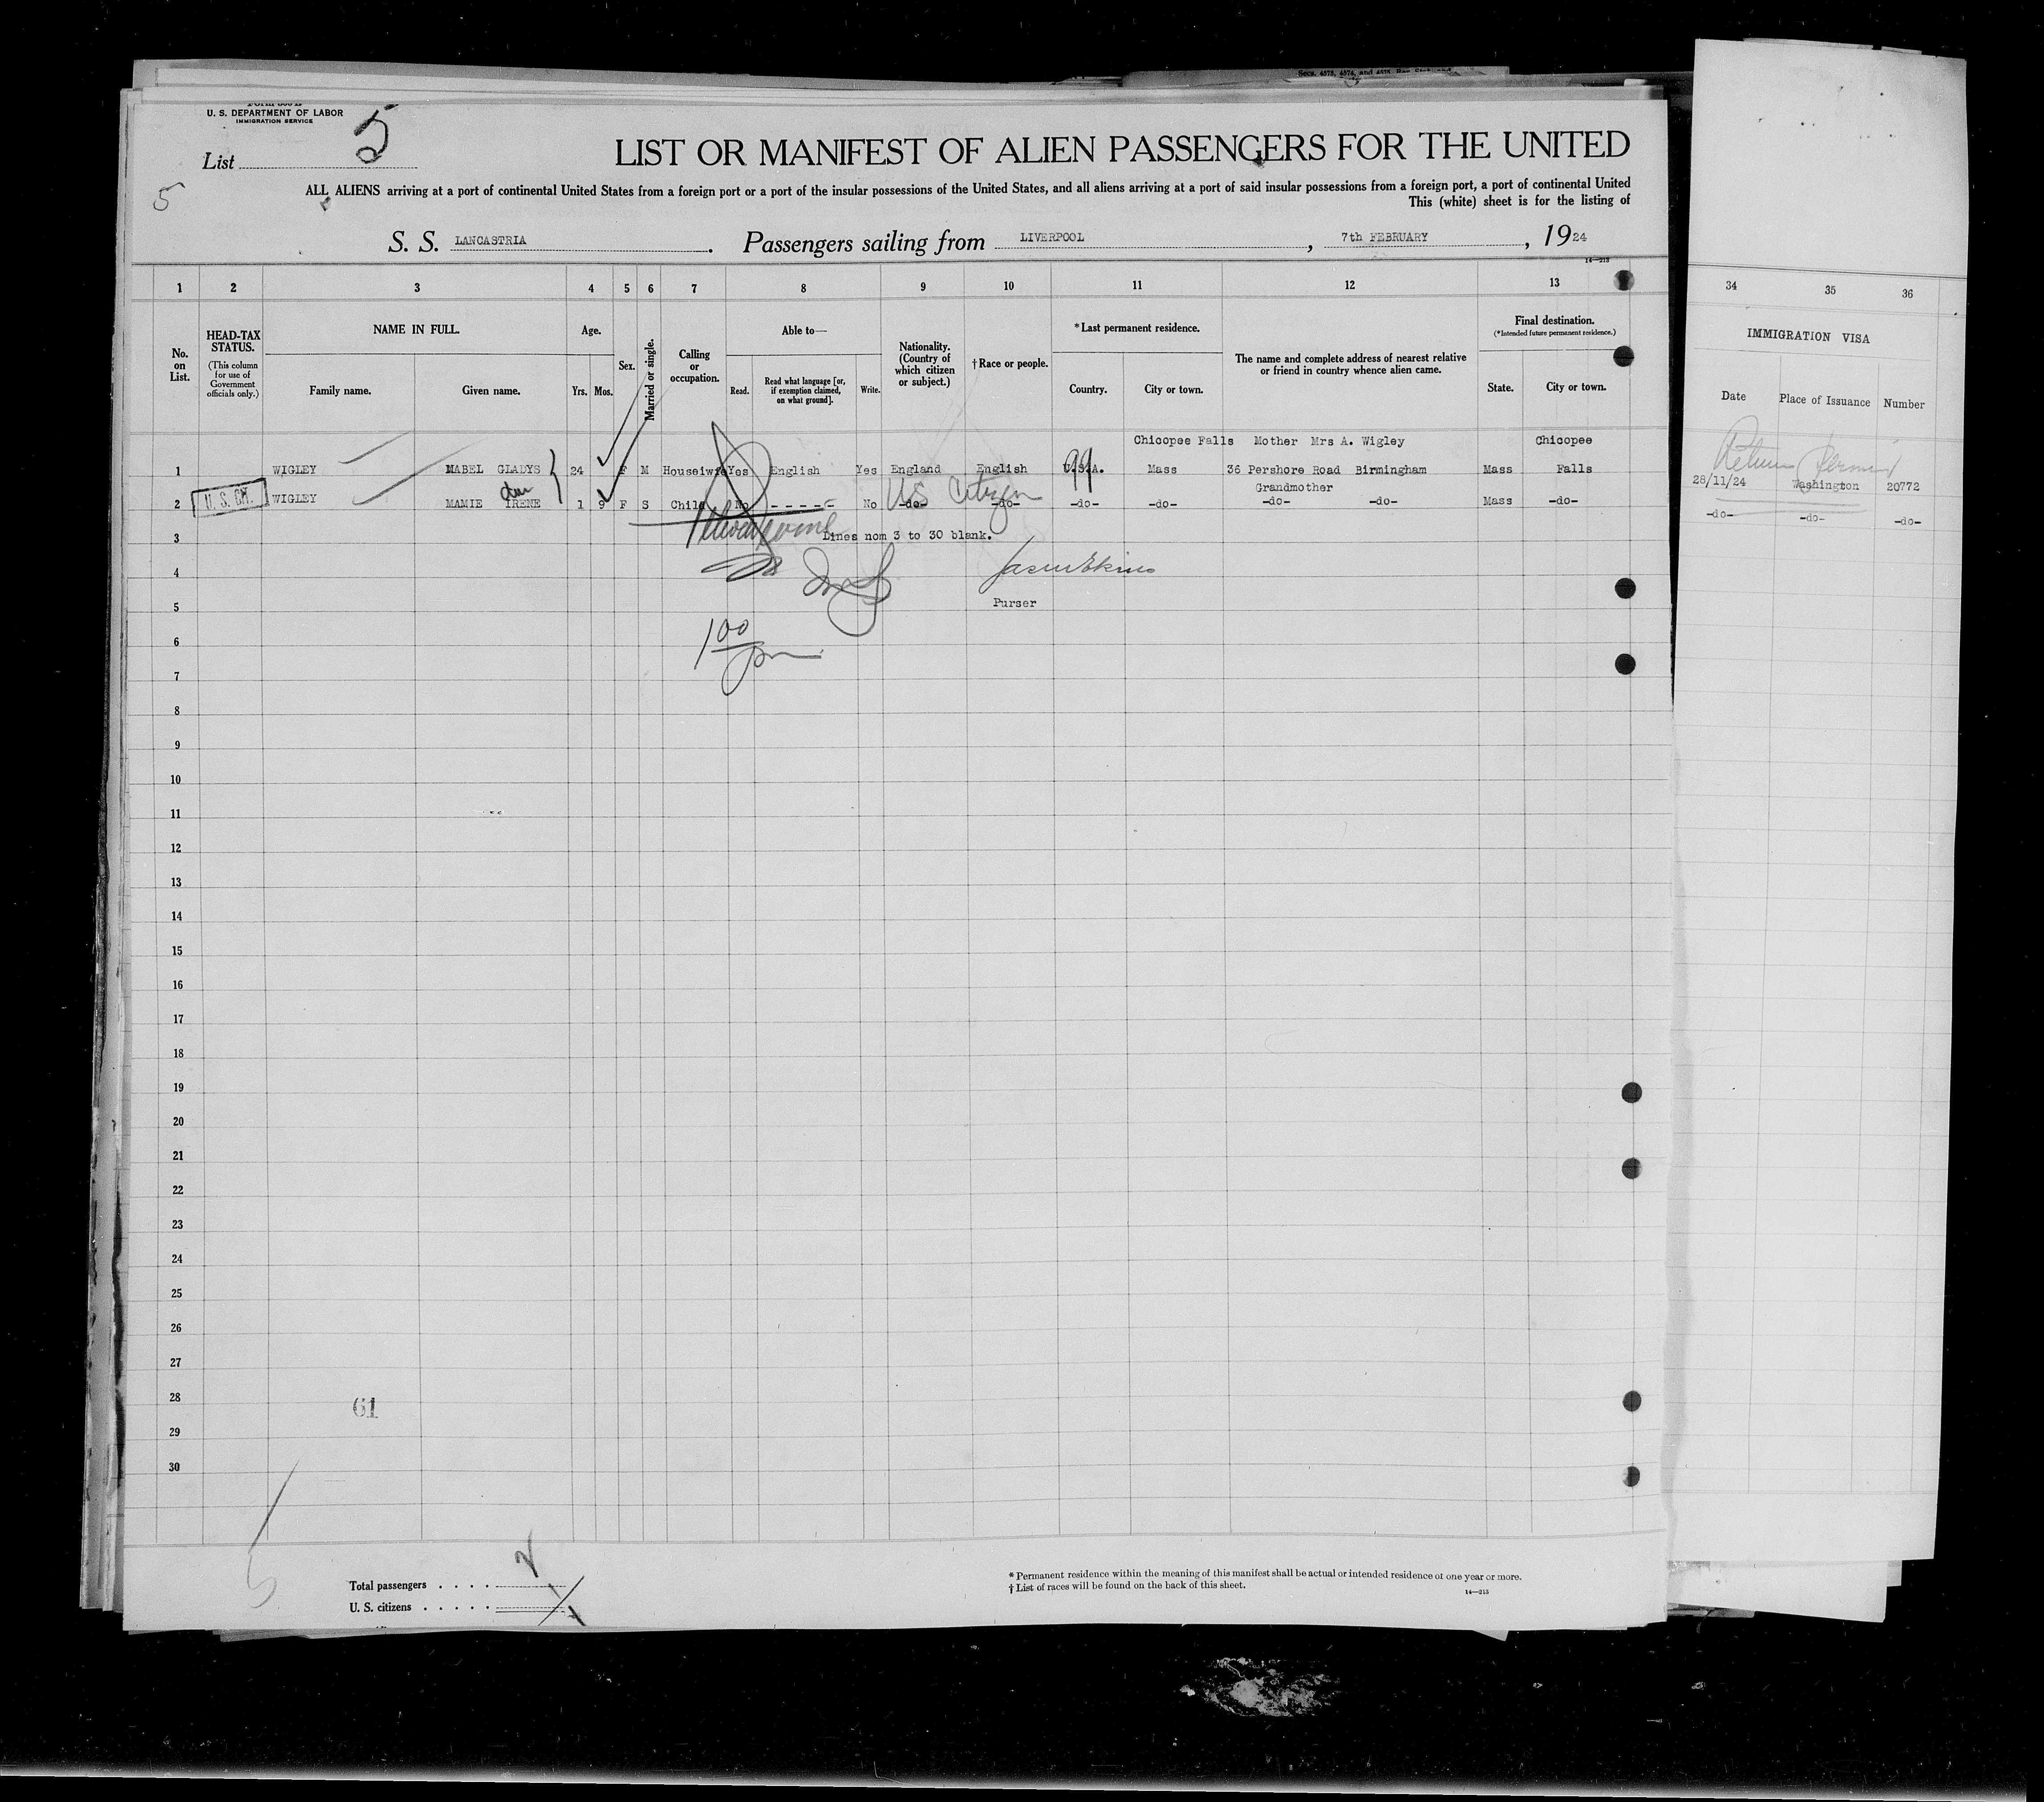 Secs. 4573, 4574, and 4575
U. S. DEPARTMENT OF LABOR
IMMIGRATION SERVICE
List 5
5
LIST OR MANIFEST OF ALIEN PASSENGERS FOR THE UNITED
ALL ALIENS arriving at a port of continental United States from a foreign port or a port of the insular possessions of the United States, and all aliens arriving at a port of said insular possessions from a foreign port, a port of continental United
This (white) sheet is for the listing of
S. S. LANCASTRIA . Passengers sailing from LIVERPOOL , 7th FEBRUARY , 1924
14—213
1 2 3 4 5 6 7 8 9 10 11 12 13 34 35 36
No. on List.
HEAD-TAX STATUS.
(This column for use of Government officials only.)
NAME IN FULL.
Family name. Given name.
Age.
Yrs. Mos.
Sex.
Married or single.
Calling or occupation.
Able to—
Read. Read what language [or, if exemption claimed, on what ground]. Write.
Nationality. (Country of which citizen or subject.)
†Race or people.
*Last permanent residence.
Country. City or town.
The name and complete address of nearest relative or friend in country whence alien came.
Final destination.
(*Intended future permanent residence.)
State. City or town.
IMMIGRATION VISA
Date Place of Issuance Number
Chicopee Falls Mother Mrs A. Wigley Chicopee
1 WIGLEY MABEL GLADYS 24 F M Houseiwfe Yes English Yes England English U.S.A. Mass 36 Pershore Road Birmingham Mass Falls
99
Return Permit
28/11/24 Washington 20772
Grandmother
U. S. CIT.
2 WIGLEY MAMIE IRENE 1 9 F S Child No - - - - - No -do- -do- -do- -do- -do- -do- Mass -do- -do- -do- -do-
dau
US Citizen
3 Lines nom 3 to 30 blank.
4
5 Purser
6
1 00 pm
7
8
9
10
11
12
13
14
15
16
17
18
19
20
21
22
23
24
25
26
27
28
61
29
30
Total passengers . . . . 2
U. S. citizens . . . . . 1
* Permanent residence within the meaning of this manifest shall be actual or intended residence of one year or more.
† List of races will be found on the back of this sheet.
14—213